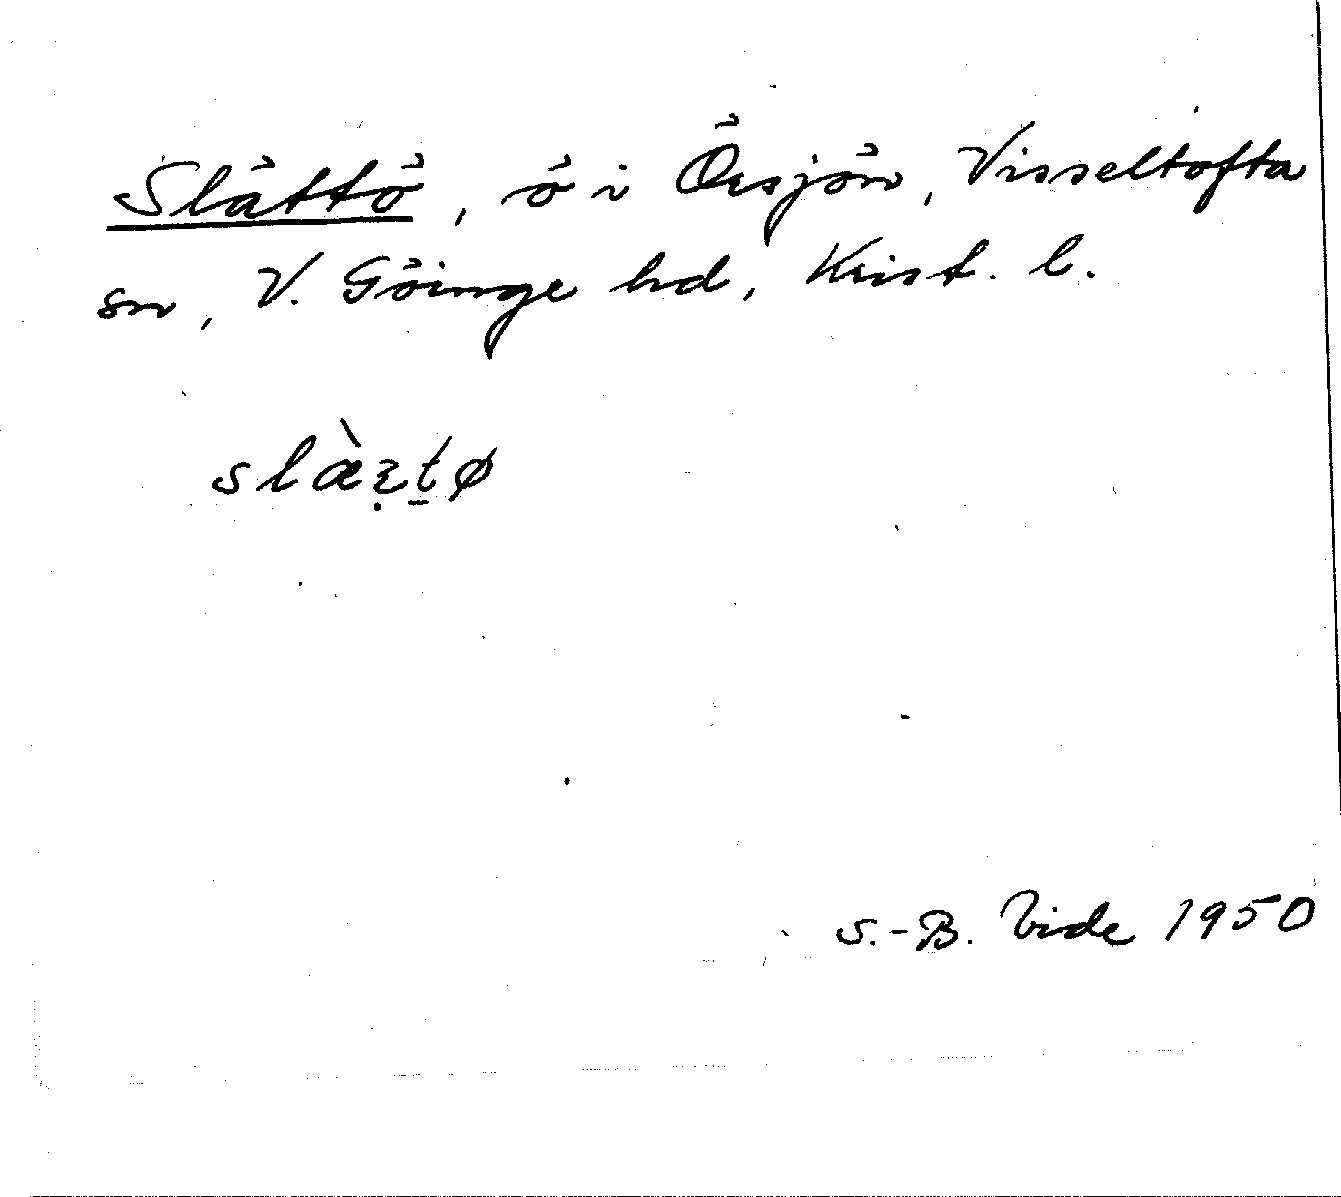 Slättö, ö i Örsjön, Visseltofta
sn, V. Göinge hd, Krist. l.
slæ̀ɛ̣ṯø
S.-B. Vide 1950